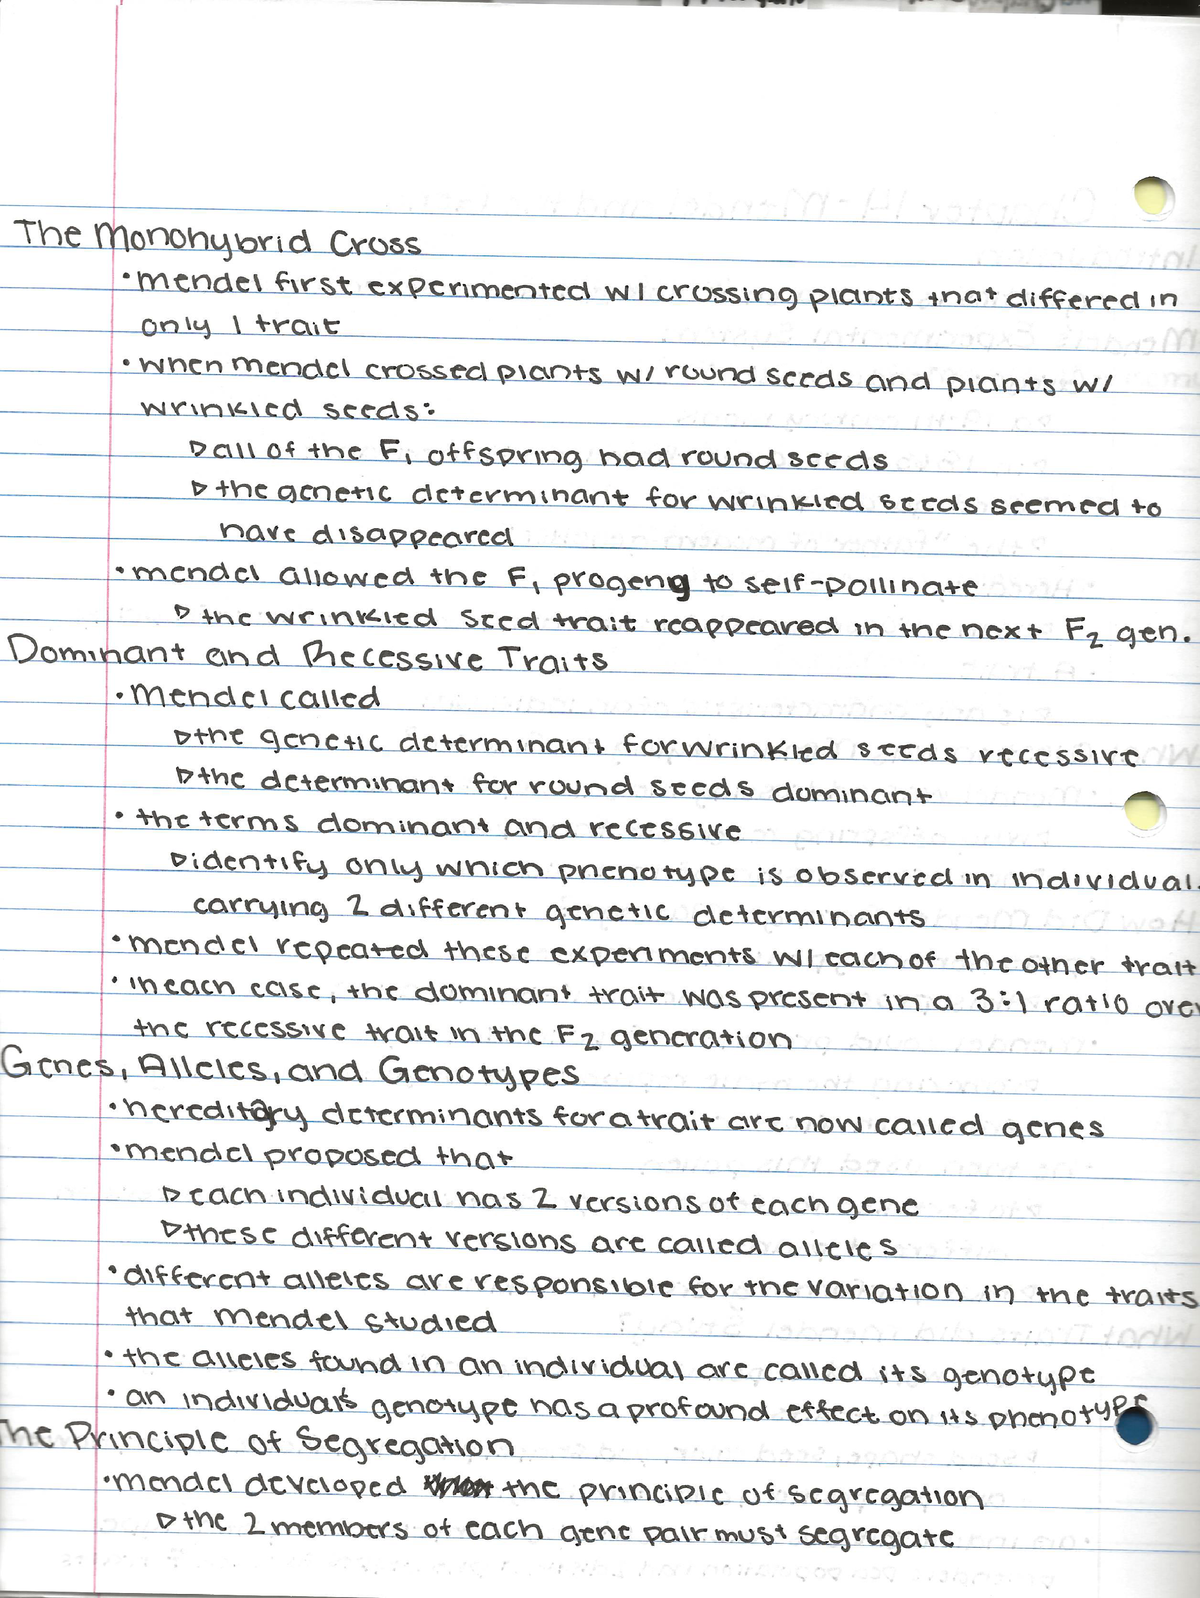 The Monohybrid Cross
• mendel first experimented w/ crossing plants that differed in
only 1 trait
• when mendel crossed plants w/ round seeds and plants w/
wrinkled seeds:
▷ all of the F₁ offspring had round seeds
▷ the genetic determinant for wrinkled seeds seemed to
have disappeared
• mendel allowed the F₁ progeny to self-pollinate
▷ the wrinkled seed trait reappeared in the next F₂ gen.
Dominant and Recessive Traits
• Mendel called
▷ the genetic determinant for wrinkled seeds recessive
▷ the determinant for round seeds dominant
• the terms dominant and recessive
▷ identify only which phenotype is observed in individual
carrying 2 different genetic determinants
• mendel repeated these experiments w/ each of the other trait
• in each case, the dominant trait was present in a 3:1 ratio over
the recessive trait in the F₂ generation
Genes, Alleles, and Genotypes
• hereditary determinants for a trait are now called genes
• mendel proposed that
▷ each individual has 2 versions of each gene
▷ these different versions are called alleles
• different alleles are responsible for the variation in the traits
that mendel studied
• the alleles found in an individual are called its genotype
• an individual's genotype has a profound effect on its phenotype
The Principle of Segregation
• mendel developed the principle of segregation
▷ the 2 members of each gene pair must segregate